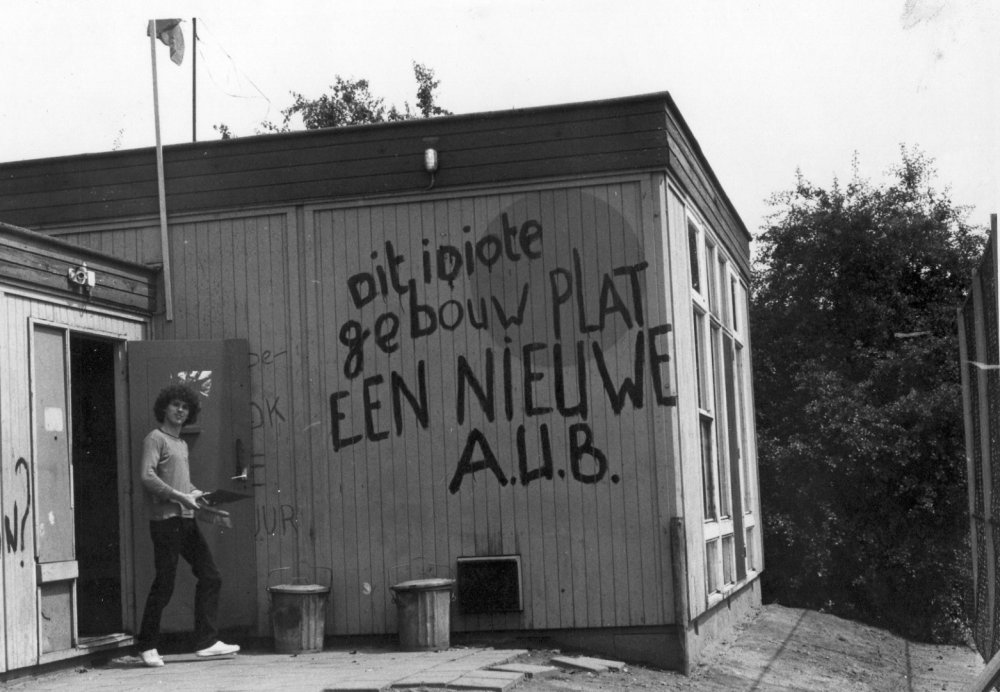 dit idiote
gebouw PLAT
EEN NIEUWE
A.U.B.